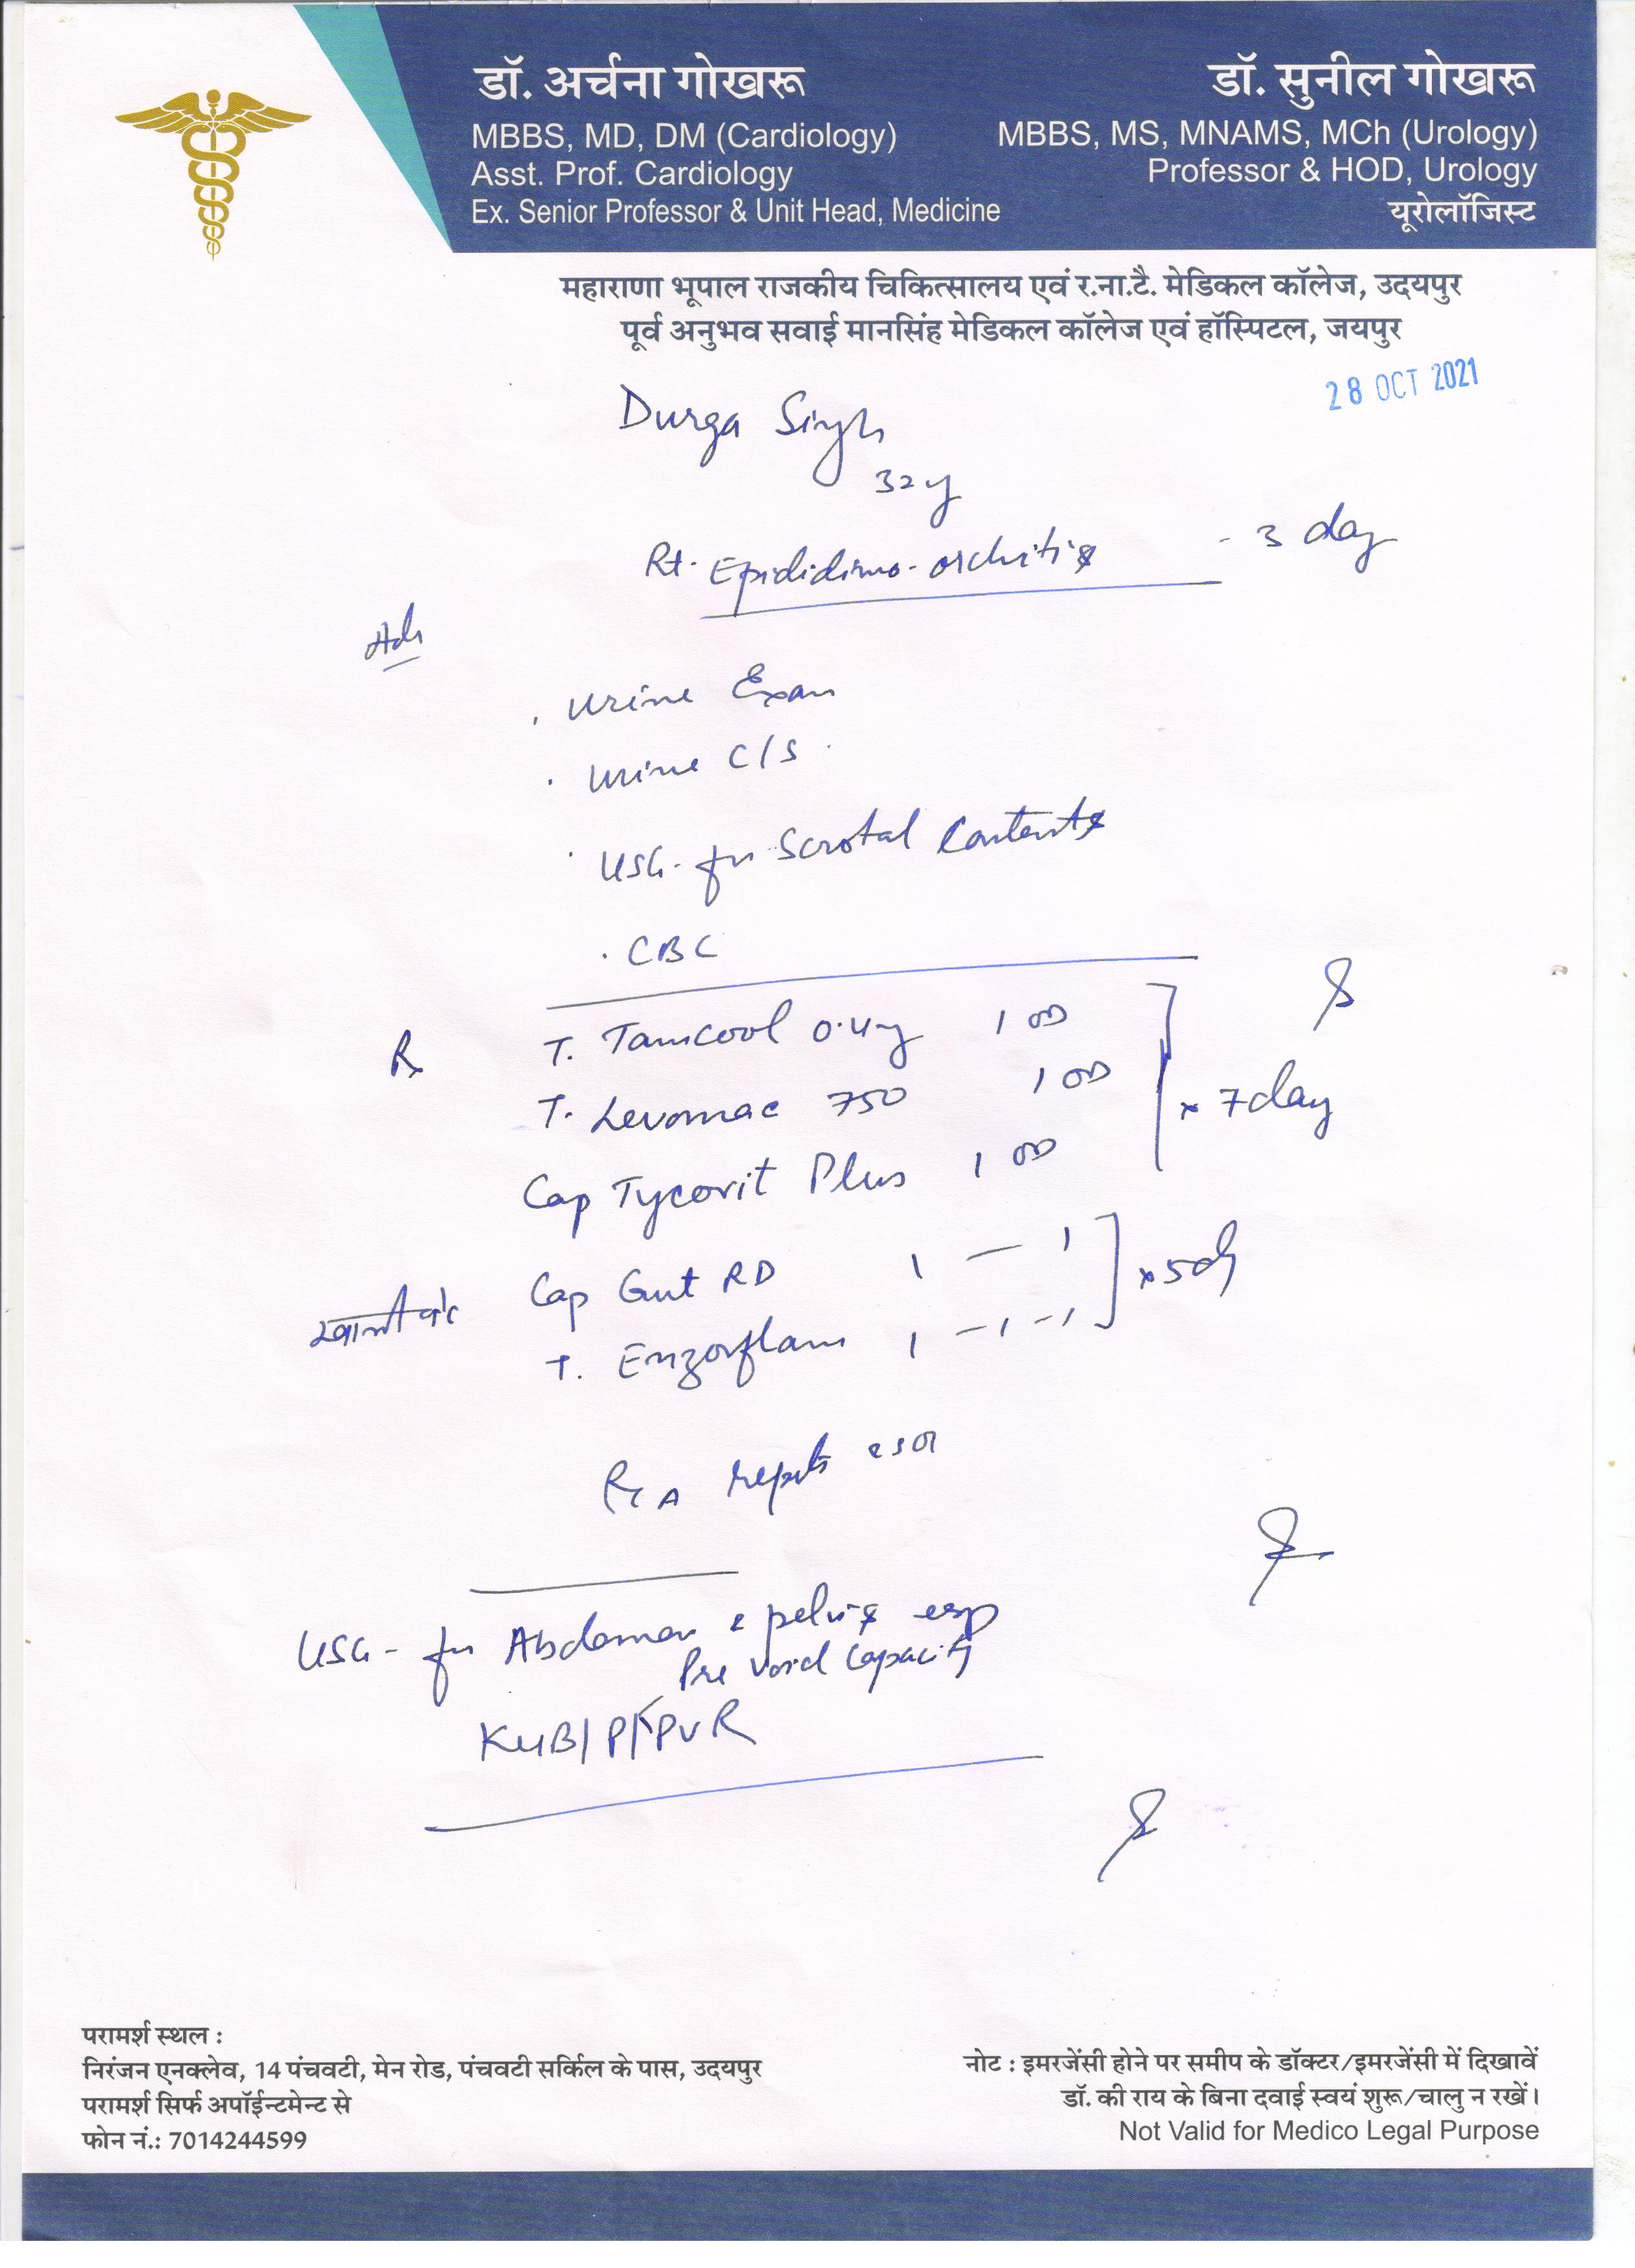 डॉ. अर्चना गोखरू
MBBS, MD, DM (Cardiology)
Asst. Prof. Cardiology
Ex. Senior Professor & Unit Head, Medicine
डॉ. सुनील गोखरू
MBBS, MS, MNAMS, MCh (Urology)
Professor & HOD, Urology
यूरोलॉजिस्ट
महाराणा भूपाल राजकीय चिकित्सालय एवं र.ना.टै. मेडिकल कॉलेज, उदयपुर
पूर्व अनुभव सवाई मानसिंह मेडिकल कॉलेज एवं हॉस्पिटल, जयपुर
28 OCT 2021
Durga Singh
32y
Rt. Epididimo-orchitis - 3 day
Adv
. Urine Exam
. Urine C/S
. USG - for Scrotal Contents
. CBC
Rx T. Tamcool 0.4mg 1 OD
T. Levomac 750 1 OD
x 7 day
Cap Tycovit Plus 1 OD
खाली पेट Cap Gut RD 1 — 1
x 5 d
T. Enzoflam 1 - 1 - 1
reports
USG - for Abdomen & pelvis esp
Pre void capacity
KUB/P/PVR
परामर्श स्थल :
निरंजन एनक्लेव, 14 पंचवटी, मेन रोड, पंचवटी सर्किल के पास, उदयपुर
परामर्श सिर्फ अपॉईन्टमेन्ट से
फोन नं.: 7014244599
नोट : इमरजेंसी होने पर समीप के डॉक्टर/इमरजेंसी में दिखावें
डॉ. की राय के बिना दवाई स्वयं शुरू/चालु न रखें।
Not Valid for Medico Legal Purpose